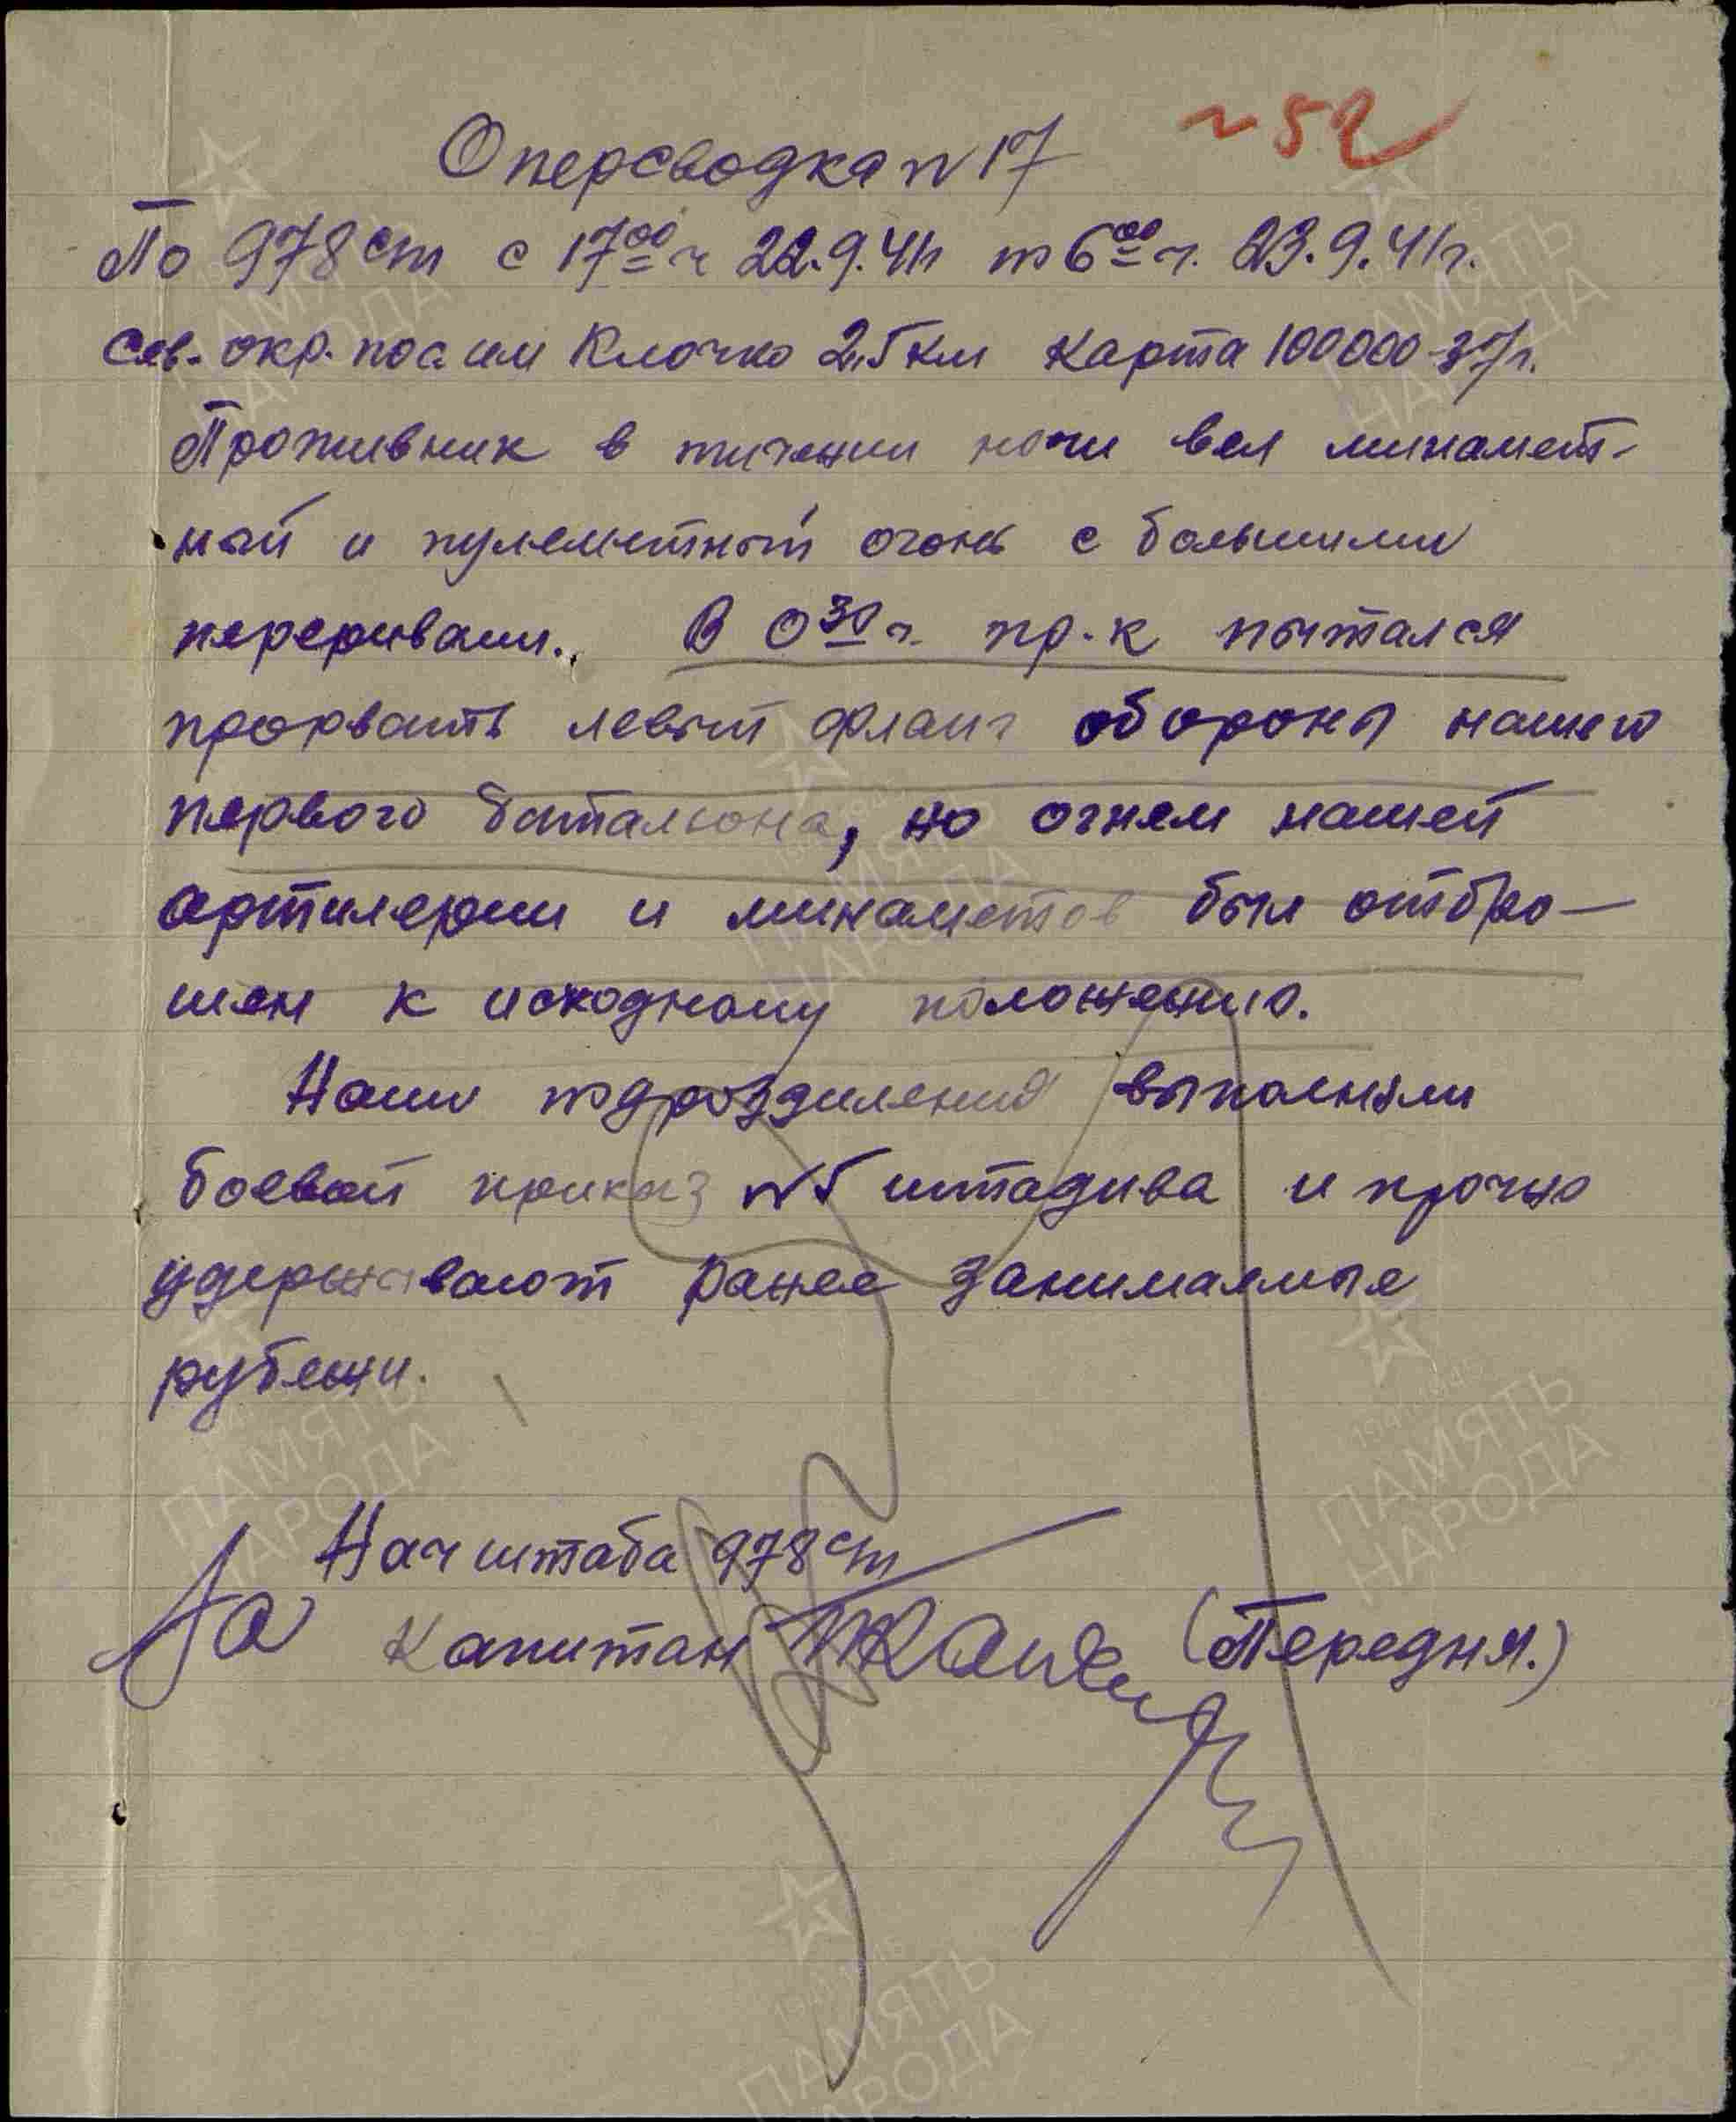 № 52
Оперсводка № 17
По 978 сп с 17⁰⁰ ч 22.9.41г по 6⁰⁰ ч. 23.9.41г.
Сев. окр. пос им Клочко 2,5 км Карта 100000-37г.
Противник в течении ночи вел минамет-
ный и пулеметный огонь с большими
перерывами. В 0³⁰ ч. пр-к пытался
прорвать левый фланг обороны нашего
первого батальона, но огнем нашей
артилерии и минаметов был отбро-
шен к исходному положению.
Наши подрозделения выполняли
боевой приказ № 5 штадива и прочно
удерживают ранее занимаемые
рубежи.
Нач штаба 978 сп
За Капитан (Передня.)
ПАМЯТЬ
НАРОДА